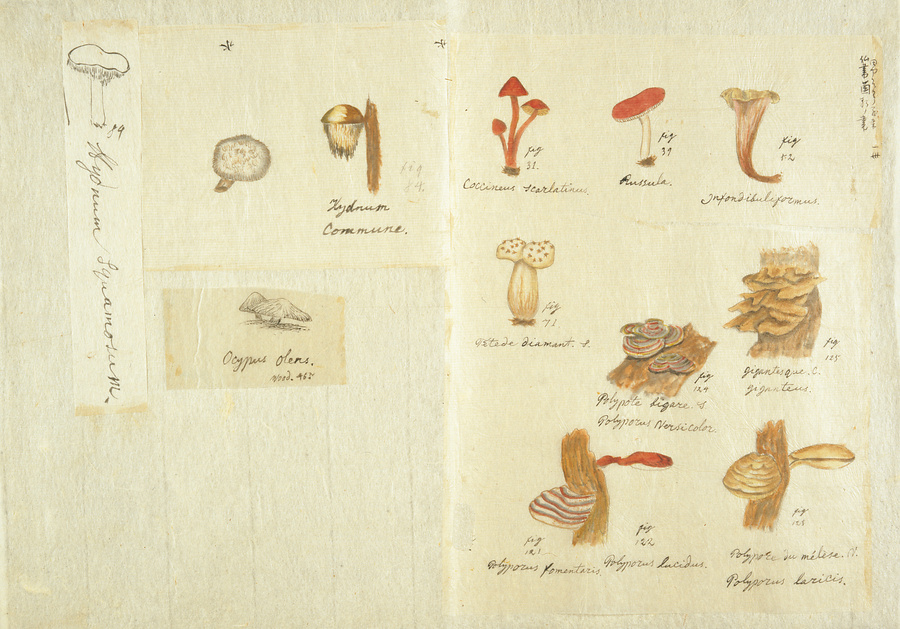 84
Hydnum Squamosum.
fig
84.
Hydnum
Commune.
Ocypus olens.
Wood. 465
fig
31.
Coccineus Scarlatinus.
fig
39
Russula.
fig
52
Infondibuliformus.
fig
71
Tetede diamant. S.
fig
124
Polypote bigare. S.
Polyporus Versicolor
fig
125
gigantesque. C.
giganteus.
fig
121
Polyporus fomentaris.
fig
122
Polyporus lucidus.
fig
123
Polypote du mélèse. P.
Polyporus laricis.